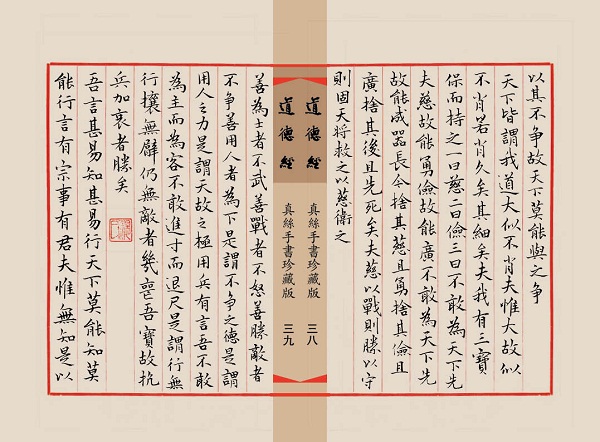 以其不争故天下莫能與之争
天下皆謂我道大似不肖夫惟大故似
不肖若肖久矣其細矣夫我有三寶
保而持之一曰慈二曰儉三曰不敢為天下先
夫慈故能勇儉故能廣不敢為天下先
故能成器長今捨其慈且勇捨其儉且
廣捨其後且先死矣夫慈以戰則勝以守
則固天將救之以慈衛之
道德經 真絲手書珍藏版 三八
道德經 真絲手書珍藏版 三九
善為士者不武善戰者不怒善勝敵者
不争善用人者為下是謂不争之德是謂
用人之力是謂天故之極用兵有言吾不敢
為主而為客不敢進寸而退尺是謂行無
行攘無臂仍無敵者幾喪吾寶故抗
兵加哀者勝矣
吾言甚易知甚易行天下莫能知莫
能行言有宗事有君夫惟無知是以